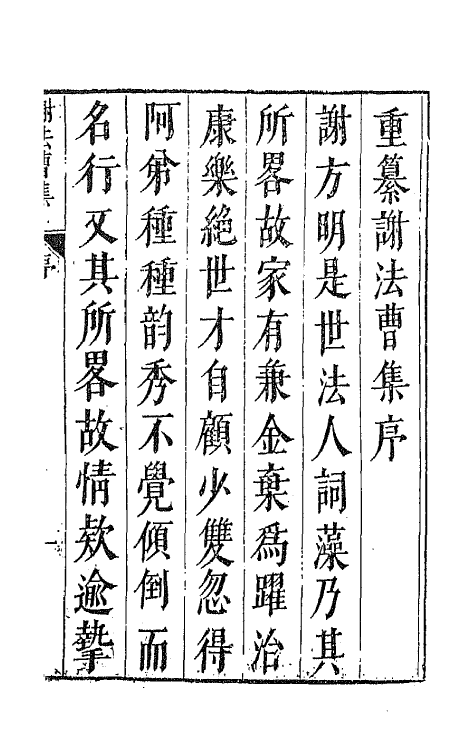 重纂謝法曹集序
謝方明是世法人詞藻乃其
所畧故家有兼金棄爲躍冶
康樂絶世才自顧少雙忽得
阿弟種種韵秀不覺傾倒而
名行又其所畧故情欵逾摯
謝法曹集
序
一